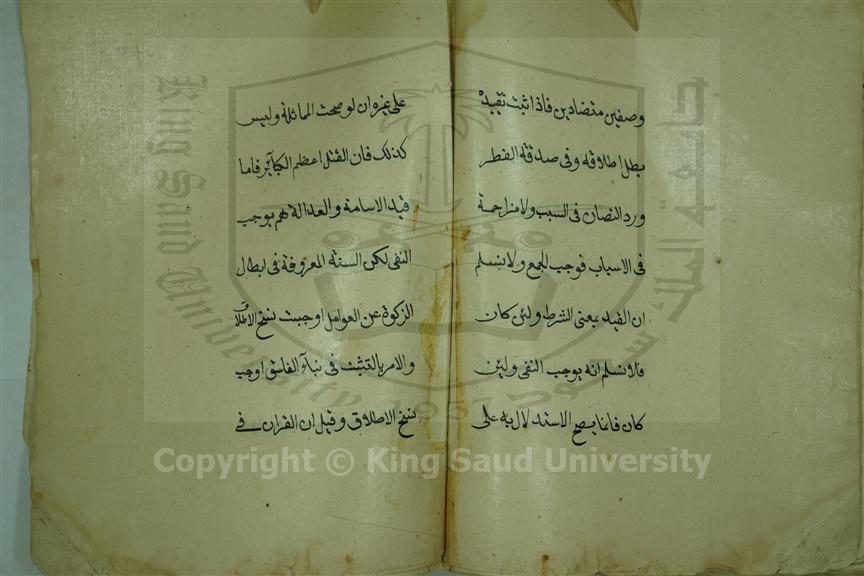 وصفين متضادين فاذا ثبت تقييده
بطل اطلاقه وفى صدقة الفطر
ورد النصان فى السبب ولا مزاحمة
فى الاسباب فوجب الجمع ولا نسلم
ان القيد بمعنى الشرط ولئن كان
فلا نسلم انه يوجب النفى ولئن
كان فانما يصح الاستدلال به على
على غيره ان لو صحت المماثلة وليس
كذلك فان القتل اعظم الكبآئر فاما
قيد الاسامة والعدالة فلم يوجب
النفى لكن السنة المعروفة فى ابطال
الزكوة عن العوامل اوجبت نسخ الاطلاق
والامر بالتثبت فى نبآء الفاسق اوجب
نسخ الاطلاق وقيل ان القران فى
King Saud University
جامعة الملك سعود
1957
Copyright © King Saud University